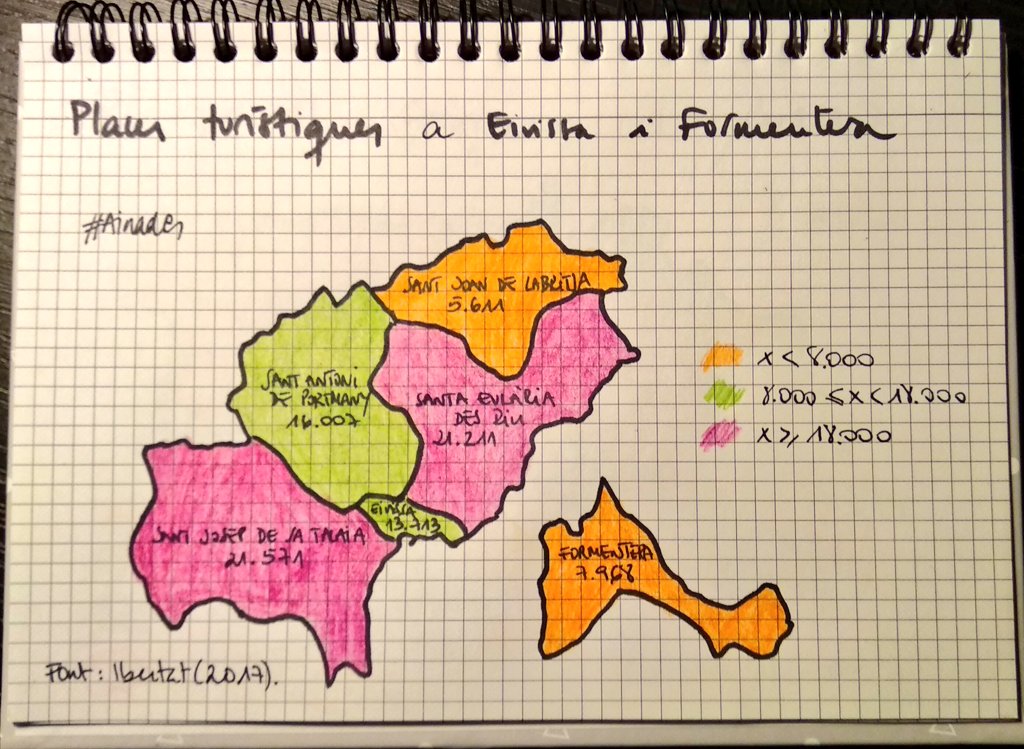 Places turístiques a Eivissa i Formentera
#Ainades
SANT JOAN DE LABRITJA
5.611
SANT ANTONI
DE PORTMANY
16.007
SANTA EULÀRIA
DES RIU
21.211
x < 8.000
8.000 ≤ x < 18.000
x ≥ 18.000
EIVISSA
13.713
SANT JOSEP DE SA TALAIA
21.571
FORMENTERA
7.968
Font: Ibestat (2017).